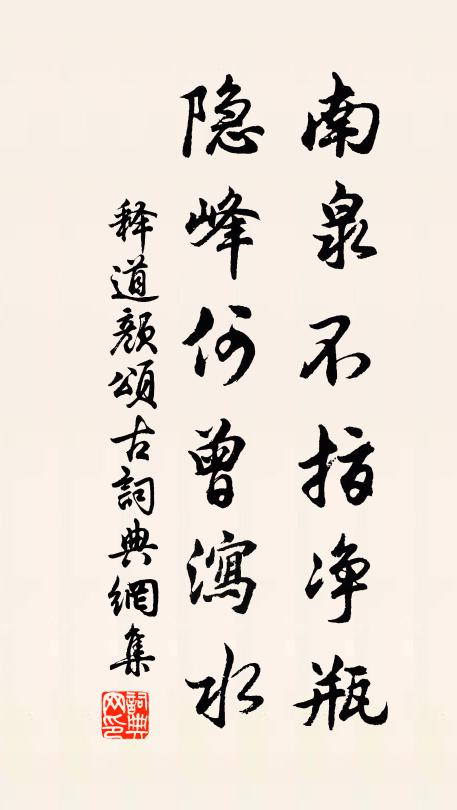 南泉不指净瓶
隐峰何曾瀉水
释道颜頌古詞典網集
詞典
网印